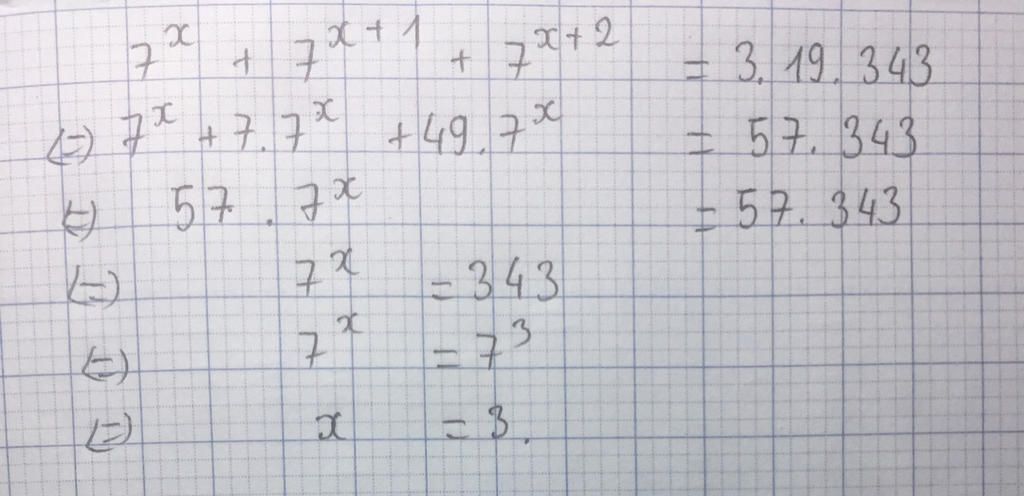 7^x + 7^{x+1} + 7^{x+2} = 3. 19. 343
(=) 7^x + 7. 7^x + 49. 7^x = 57. 343
(=) 57 . 7^x = 57. 343
(=) 7^x = 343
(=) 7^x = 7^3
(=) x = 3.